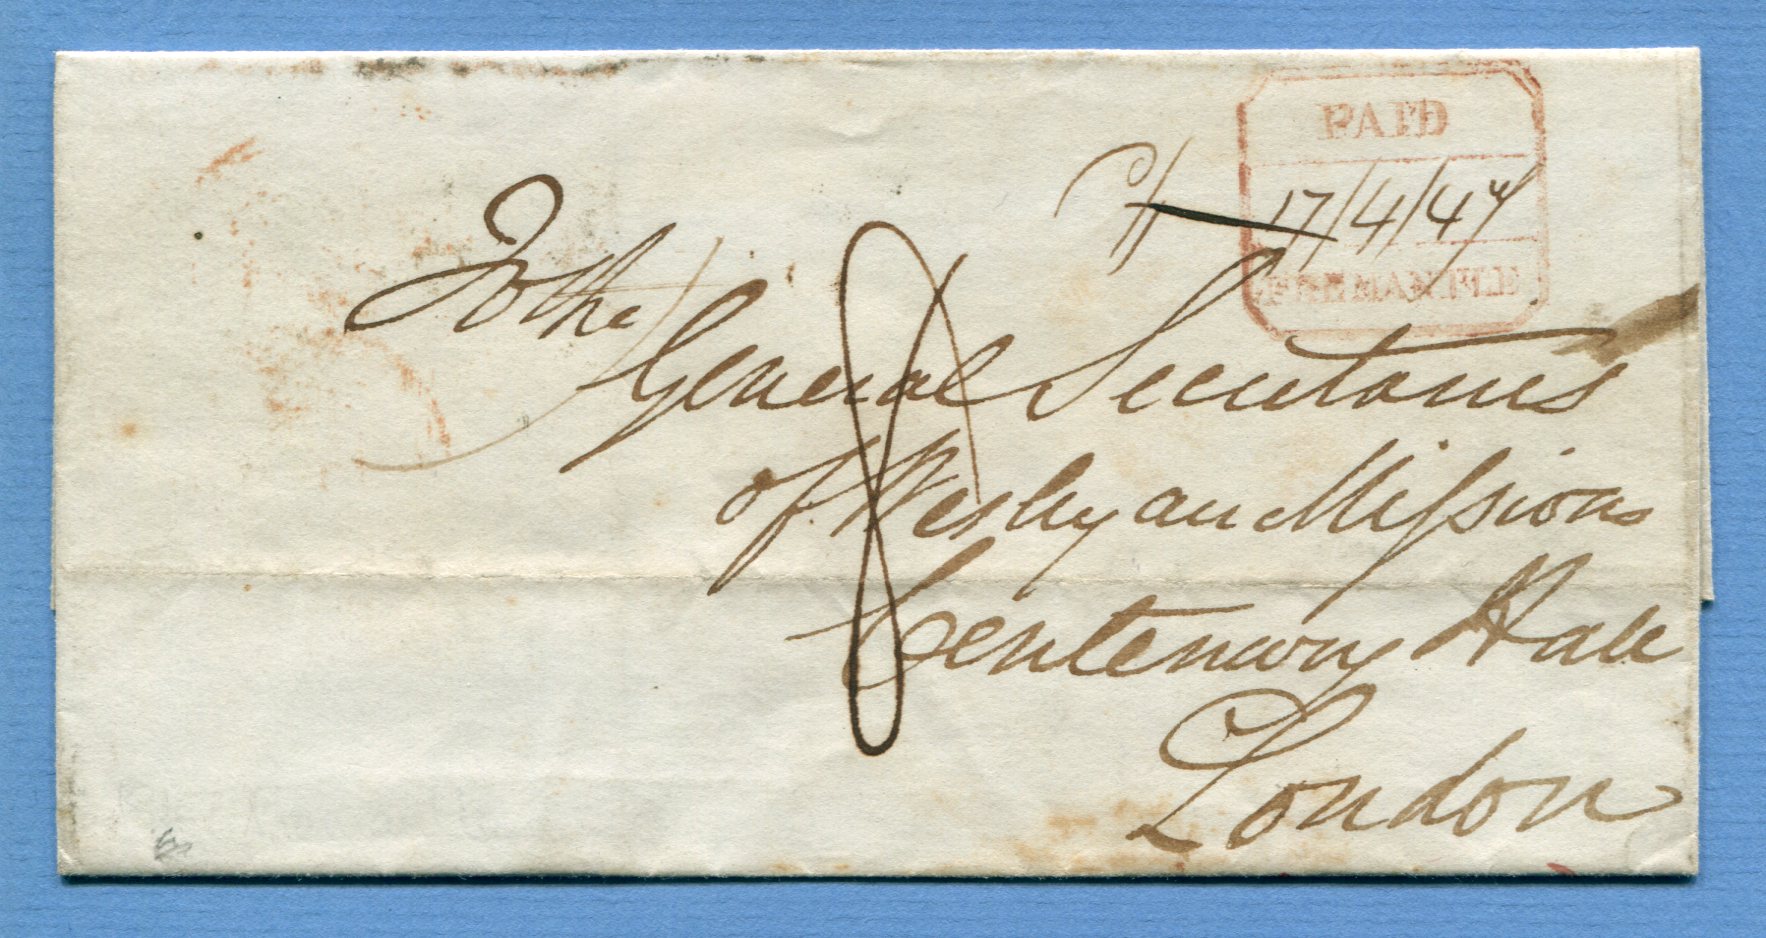 PAID
17/4/47
FREMANTLE
To the
General Secretaries
of Wesleyan Missions
Centenary Hall
London
8